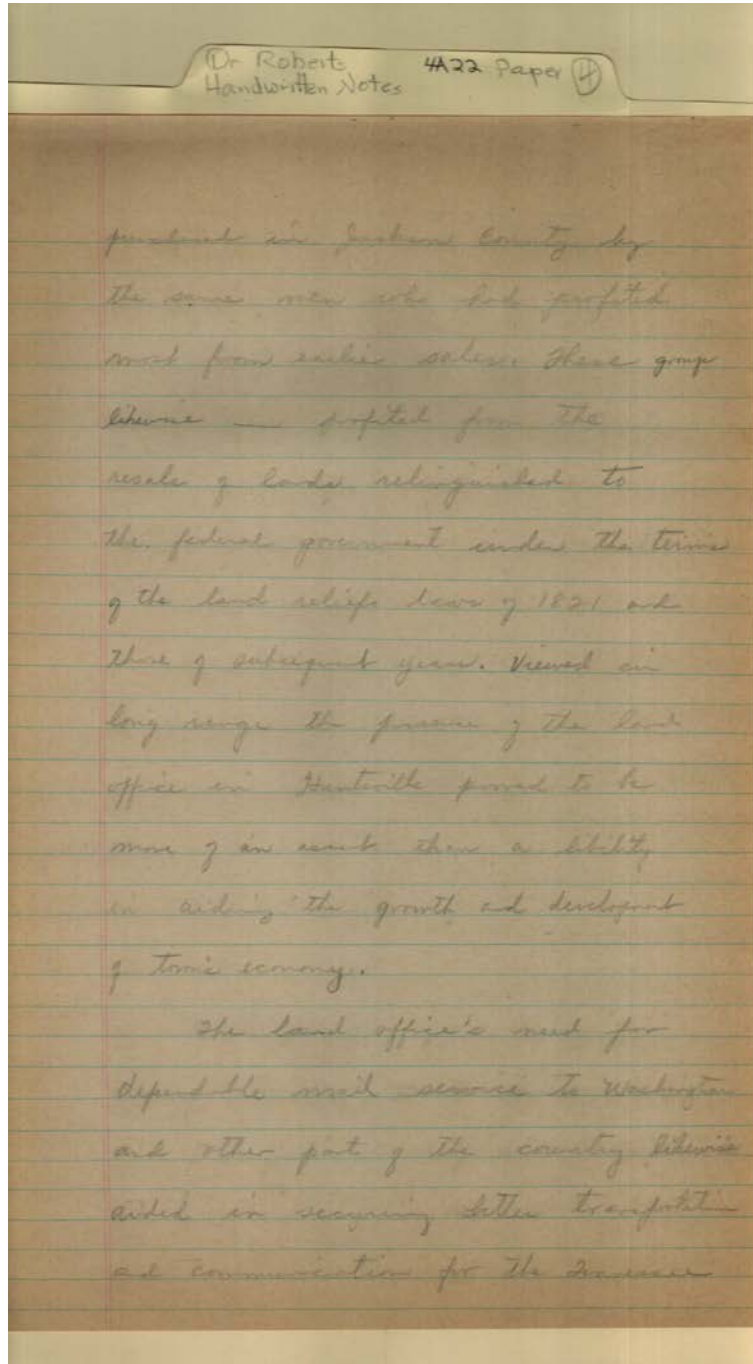 Dr Roberts 4A22 Paper 4
Handwritten Notes
purchased in Jackson County by
the same men who had profited
most from earlier sales. These group
likewise profited from the
resale of lands relinquished to
the federal government under the terms
of the land reliefs laws of 1821 and
those of subsequent years. Viewed in
long range the presence of the land
office in Huntsville proved to be
more of an asset than a libility
in aiding the growth and development
of town's economy.
The land office's need for
dependable mail service to Washington
and other part of the country likewise
aided in securing better transportation
and communication for the Tennessee